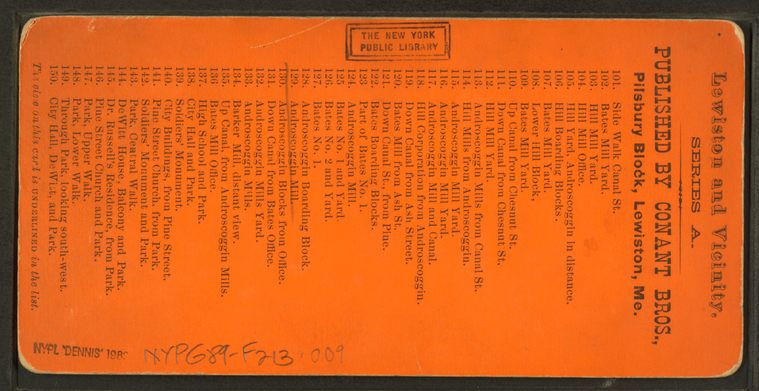 Lewiston and Vicinity.
SERIES A.
PUBLISHED BY CONANT BROS.,
Pilsbury Block, Lewiston, Me.
101. Side Walk Canal St.
102. Bates Mill Yard.
103. Hill Mill Yard.
104. Hill Mill Office.
105. Hill Yard, Androscoggin in distance.
106. Boarding Blocks.
107. Bates Yard.
108. Lower Hill Block.
109. Bates Mill Yard.
110. Up Canal from Chesnut St.
111. Down Canal from Chesnut St.
112. Hill Yard.
113. Androscoggin Mills from Canal St.
114. Hill Mills from Androscoggin.
115. Androscoggin Mill Yard.
116. Androscoggin Mill Yard.
117. Androscoggin and Canal.
118. Hill Corporation from Androscoggin.
119. Down Canal from Ash Street.
120. Bates Mill from Ash St.
121. Down Canal St., from Pine.
122. Bates Boarding Blocks.
123. Part of Bates No. 1.
124. Androscoggin Mill.
125. Bates No. 1 and Yard.
126. Bates No. 2 and Yard.
127. Bates No. 1.
128. Androscoggin Boarding Block.
129. Androscoggin Mill.
130. Androscoggin Blocks from Office.
131. Down Canal from Bates Office.
132. Androscoggin Mills Yard.
133. Androscoggin Mills.
134. Parker Mill, distant view.
135. Up Canal from Androscoggin Mills.
136. Bates Mill Office.
137. High School and Park.
138. City Hall and Park.
139. Soldiers' Monument.
140. City Buildings, from Pine Street.
141. Pine Street Church, from Park.
142. Soldiers' Monument and Park.
143. Park, Central Walk.
144. DeWitt House, Balcony and Park.
145. Dr. Russell's Residence, from Park.
146. Pine Street Church and Park.
147. Park, Upper Walk.
148. Park, Lower Walk.
149. Through Park, looking south-west.
150. City Hall, DeWitt, and Park.
The view on this card is UNDERLINED in the list.
THE NEW YORK
PUBLIC LIBRARY
NYPL "DENNIS" 198
NYPG89-F213 .009